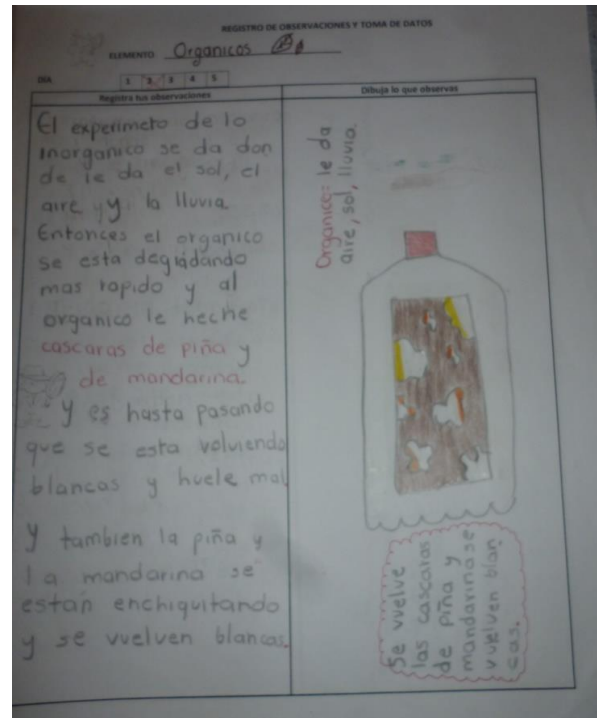 REGISTRO DE OBSERVACIONES Y TOMA DE DATOS
ELEMENTO Organicos
DIA 1 2 3 4 5
Registra tus observaciones
El experimeto de lo
inorganico se da don
de le da el sol, el
aire y la lluvia
Entonces el organico
se esta degradando
mas rapido y al
organico le heche
cascaras de piña y
de mandarina.
y es hasta pasando
que se esta volviendo
blancas y huele mal
y tambien la piña y
la mandarina se
estan enchiquitando
y se vuelven blancas.
Dibuja lo que observas
Organico: le da
aire, sol, lluvia.
Se vuelve
las cascaras
de piña y
mandarina se
vuelven blan
cas.